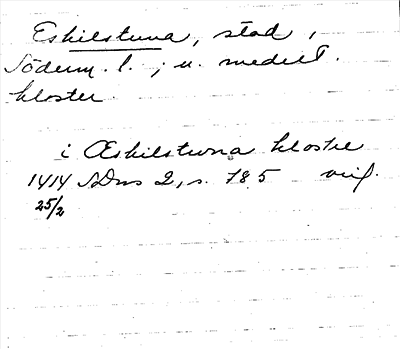 Eskilstuna, stad,
Söderm. l.; u. medelt.
kloster.
i Æskilstuna kloste
1414 SDns 2, s. 785
25/2